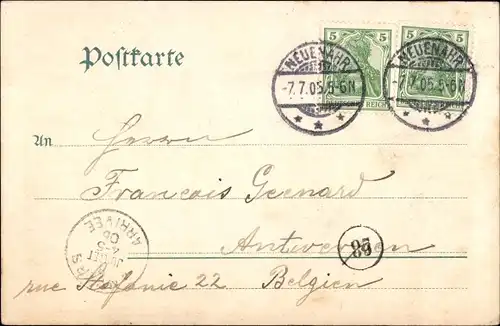 Postkarte
5 5 5 5
NEUENAHR
-7.7.05.5-6N
NEUENAHR
7.7.05.5-6N
REICH
REICH
An
Herrn
Francois Geenard
Antwerpen
rue Stefanie 22
Belgien
ARRIVEE